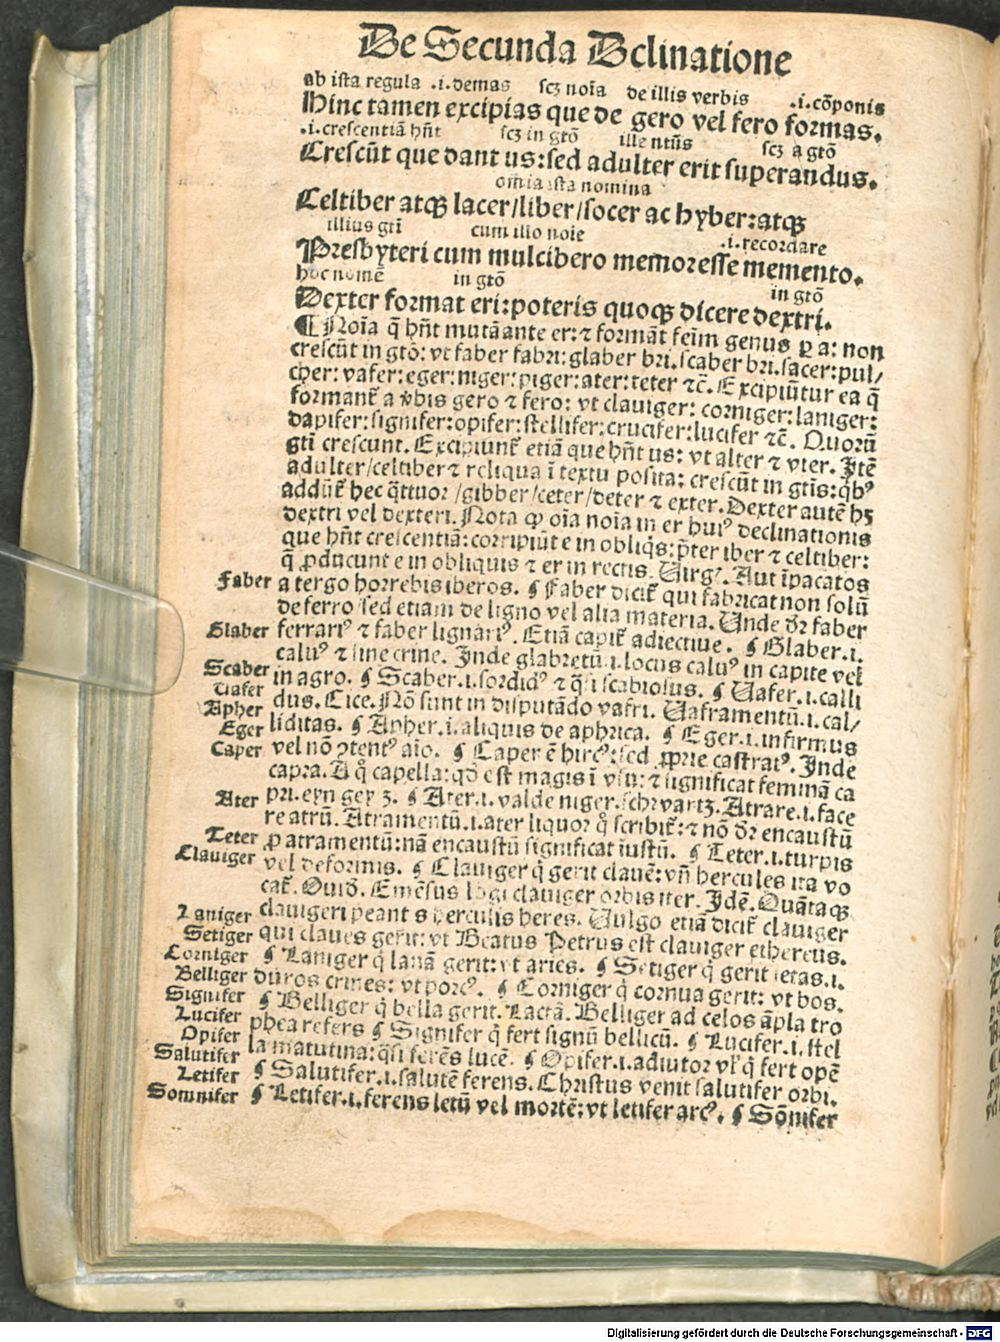 De Secunda Dclinatione
ab ista regula .i. demas scꝫ noīa de illis verbis .i. cōponis
Hinc tamen excipias que de gero vel fero formas.
.i. crescentiā hn̄t scꝫ in gtō ille ntūs scꝫ a gtō
Crescūt que dant us: sed adulter erit superandus.
omīa ista nomina
Celtiber atqꝫ lacer/liber/socer ac hyber: atqꝫ
illius gti cum illo noie .i. recordare
Presbyteri cum mulcibero memoresse memento.
hoc nomē in gtō in gtō
Dexter format eri: poteris quoqꝫ dicere dextri.
¶ Noīa q̄ hn̄t mutā ante er: ⁊ formāt feīm genus ꝑ a: non
crescūt in gtō: vt faber fabri: glaber bri. scaber bri. sacer: pul/
cher: vafer: eger: niger: piger: ater: teter ⁊c̄. Excipiūtur ea q̄
formant᷑ a v̄bis gero ⁊ fero: vt clauiger: corniger: laniger:
dapifer: signifer: opifer: stellifer: crucifer: lucifer ⁊c̄. Quorū
gti crescunt. Excipiunt᷑ etiā que hn̄t us: vt alter ⁊ vter. Itē
adulter/celtiber ⁊ reliqua ī textu posita: crescūt in gtīs: qͥbꝰ
addūt᷑ hec q̄ttuor/gibber/ceter/deter ⁊ exter. Dexter autē hꝫ
dextri vel dexteri. Nota ꝙ oīa noīa in er huiꝰ declinationis
que hn̄t crescentiā: corripiūt e in obliqͥs: p̄ter iber ⁊ celtiber:
q̄ ꝓducunt e in obliquis ⁊ er in rectis. Virgꝰ. Aut īpacatos
Faber a tergo horrebis iberos. ¶ Faber dicit᷑ qui fabricat non solū
de ferro sed etiam de ligno vel alia materia. Unde dr̄ faber
Glaber ferrariꝰ ⁊ faber lignariꝰ. Etiā capit᷑ adiectiue. ¶ Glaber .i.
caluꝰ ⁊ sine crine. Inde glabretū .i. locus caluꝰ in capite vel
Scaber in agro. ¶ Scaber .i. sordidꝰ ⁊ qͣsi scabiosus. ¶ Vafer .i. calli
Vafer dus. Cice. Nō sunt in disputādo vafri. Vaframentū .i. cal/
Apher liditas. ¶ Apher .i. aliquis de aphrica. ¶ Eger .i. infirmus
Eger vel nō ꝯtentꝰ aīo. ¶ Caper ē hircꝰ: sed ꝓprie castratꝰ. Inde
Caper capra. A qͦ capella: qd̄ est magis ī vsu: ⁊ significat feminā ca
Ater pri. eyn geyꝫ. ¶ Ater .i. valde niger. schwartꝫ. Atrare .i. face
re atrū. Atramentū .i. ater liquor qͦ scribit᷑: ⁊ nō dr̄ encaustū
Teter ꝓ atramentū: nā encaustū significat īustū. ¶ Teter .i. turpis
Clauiger vel deformis. ¶ Clauiger qͥ gerit clauē: vn̄ hercules ita vo
cat᷑. Ouid. Emēsus lōgi clauiger orbis iter. Idē. Quātaqꝫ
Laniger clauigeri peantis herculis heres. Vulgo etiā dicit᷑ clauiger
Setiger qui claues gerit: vt Beatus Petrus est clauiger ethereus.
Corniger ¶ Laniger qͥ lanā gerit: vt aries. ¶ Setiger qͥ gerit setas .i.
Belliger duros crines: vt porcꝰ. ¶ Corniger qͥ cornua gerit: vt bos.
Signifer ¶ Belliger qͥ bella gerit. Lactā. Belliger ad celos āpla tro
Lucifer phea refers ¶ Signifer qͥ fert signū bellicū. ¶ Lucifer .i. stel
Opifer la matutina: qͣsi ferēs lucē. ¶ Opifer .i. adiutor vl᷑ qͥ fert opē
Salutifer ¶ Salutifer .i. salutē ferens. Christus venit salutifer orbi.
Letifer ¶ Letifer .i. ferens letū vel mortē: vt letifer arcꝰ. ¶ Sōnifer
Somnifer
Digitalisierung gefördert durch die Deutsche Forschungsgemeinschaft - DFG